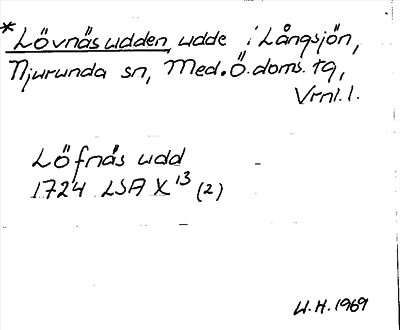 *Lövnäsudden, udde i Långsjön,
Njurunda sn, Med.Ö.doms.tg,
Vrnl.l.
Löfnås udd
1724 LSA X¹³ (2)
U.H. 1969